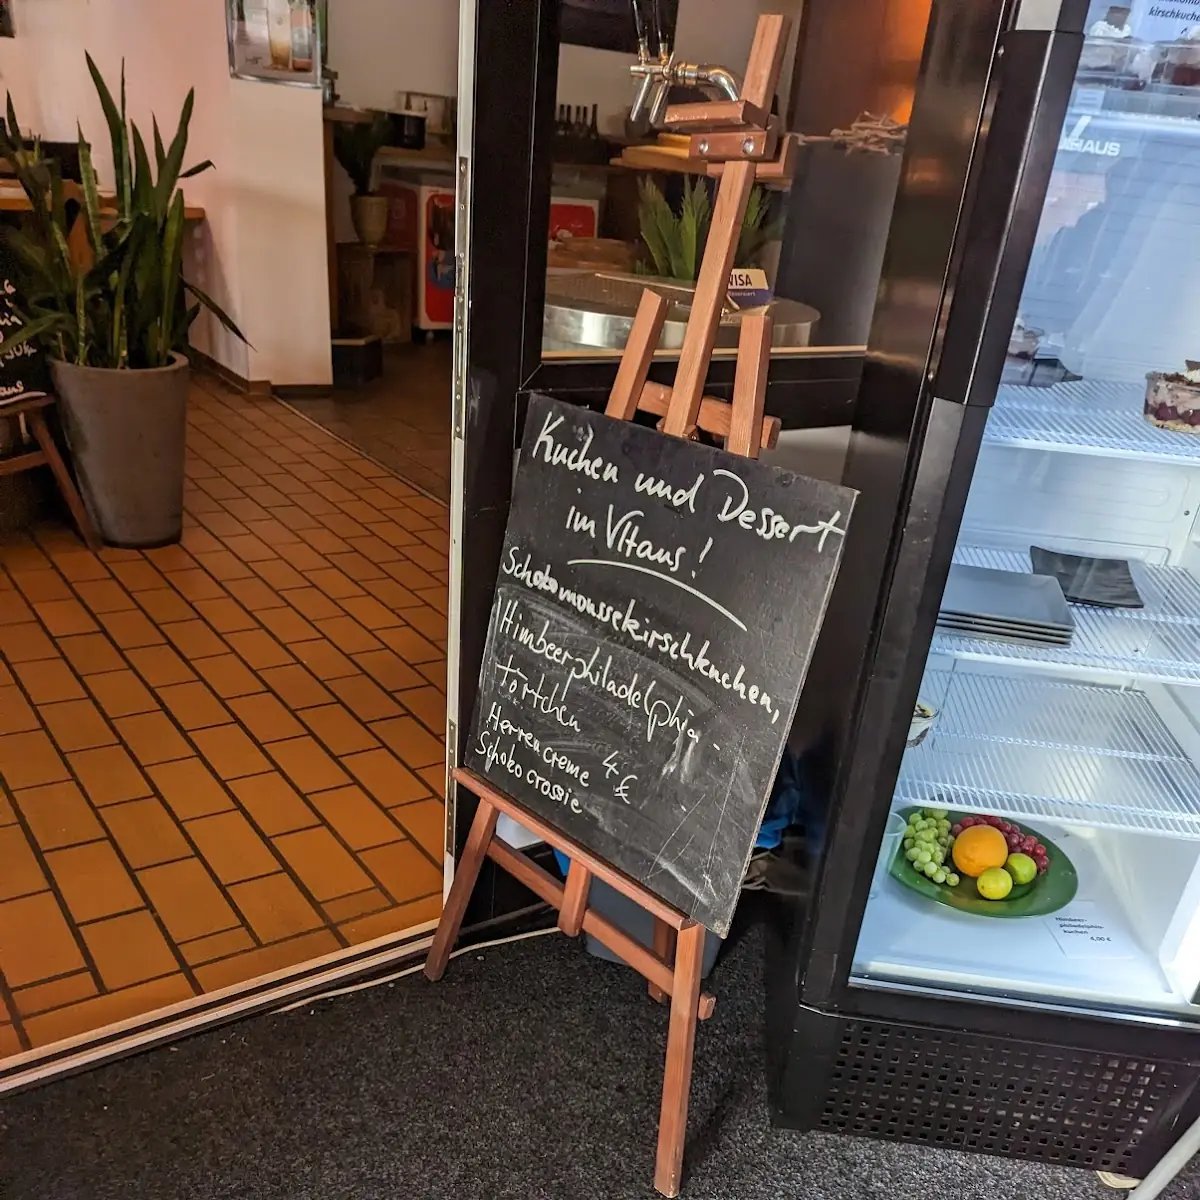 Kuchen und Dessert
im VHaus!
Schokomoussekirschkuchen,
Himbeerphiladelphia-
törtchen
Herrencreme 4€
Schoko crossie
VISA
HAUS
kirschkuche
Himbeer-
philadelphia-
kuchen
4,00 €